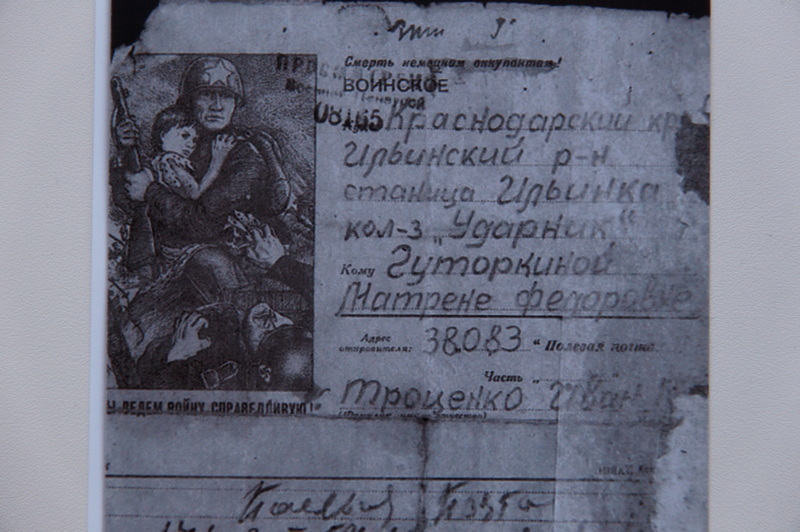 Смерть немецким оккупантам!
ВОИНСКОЕ
08165
Краснодарский кр
Ильинский р-н
станица Ильинка
кол-з „Ударник“
Кому Гуторкиной
Матрене Федоровне
Адрес отправителя: 38083 „Полевая почта
Часть
Троценко Иван
ВЕДЕМ ВОЙНУ СПРАВЕДЛИВУЮ!